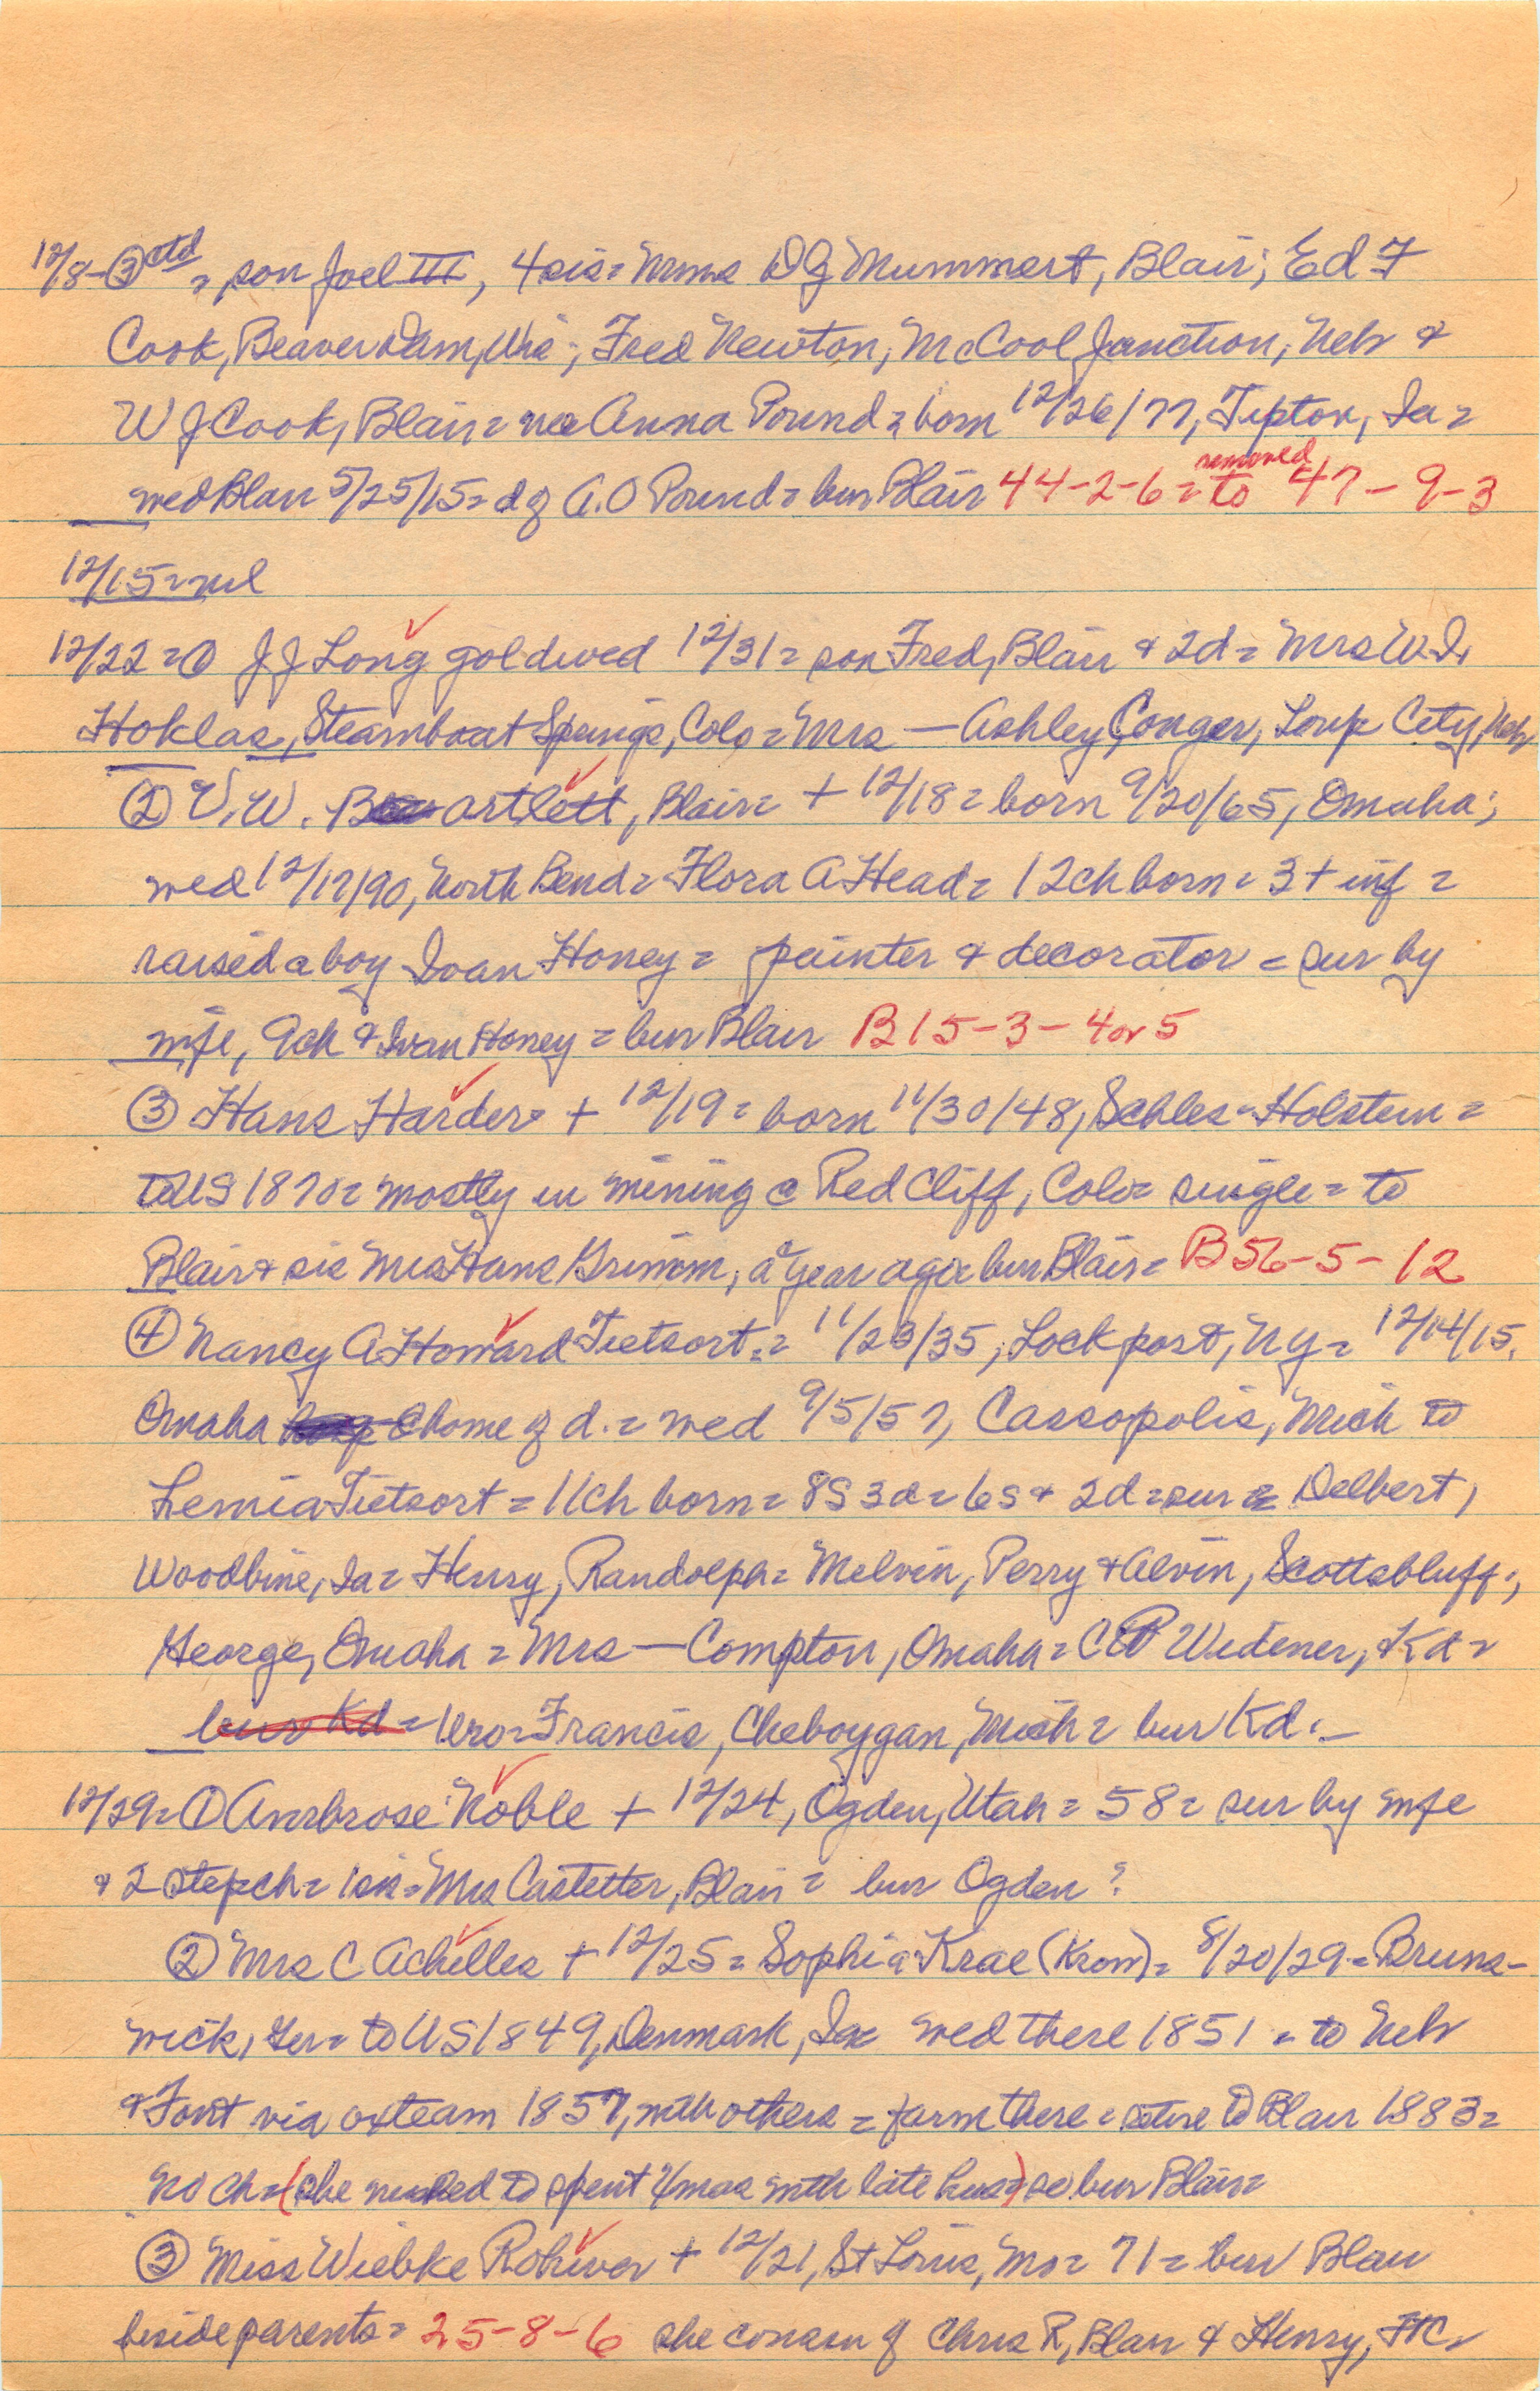 12/8-③ctd = son Joel III, 4 sis = Mrs DG Mummert, Blair; Ed F
Cook, Beaver Dam, Wis; Fred Newton, McCool Junction, Nebr &
W J Cook, Blair = nee Anna Pound = born 12/26/77, Tipton, Ia =
wed Blair 5/25/15 = d of A.O Pound = bur Blair 44-2-6 = removed to 47-9-3
12/15 = nil
12/22 = ① J J Long gold wed 12/31 = son Fred, Blair & 2d = Mrs W.I.
Hoklas, Steamboat Springs, Colo = Mrs — Ashley Conger, Loup City, Neb
② V.W. Bartlett, Blair = + 12/18 = born 9/20/65, Omaha;
wed 12/17/90, North Bend = Flora A Head = 12 ch born = 3 + inf =
raised a boy Ivan Honey = painter & decorator = sur by
wife, 9ch & Ivan Honey = bur Blair B15-3-4 or 5
③ Hans Harder = + 12/19 = born 11/30/48, Schles-Holstein =
to US 1870 = mostly in mining @ Red Cliff, Colo = single = to
Blair & sis Mrs Hans Grimm, a year ago = bur Blair = B56-5-12
④ Nancy A Howard Tietsort = 11/23/35, Lockport, NY = 12/14/15,
Omaha @ home of d. = wed 9/5/57, Cassopolis, Mich to
Lemia Tietsort = 11ch born = 8s 3d = 6s & 2d = sur = Delbert,
Woodbine, Ia = Henry, Randolph = Melvin, Perry & Alvin, Scottsbluff;
George, Omaha = Mrs — Compton, Omaha = C P Widener, Kd =
bur Kd = bro = Francis, Cheboygan, Mich = bur Kd. —
12/29 = ① Ambrose Noble + 12/24, Ogden, Utah = 58 = sur by wife
& 2 stepch = 1 sis = Mrs Castetter, Blair = bur Ogden ?
② Mrs C Achilles + 12/25 = Sophia Krae (Krom) = 8/20/29 = Bruns-
wick, Ger = to US 1849, Denmark, Ia = wed there 1851 = to Nebr
& Font via oxteam 1857, with others = farm there = retire to Blair 1883 =
no ch = (she wished to spent Xmas with late hus =) so bur Blair =
③ Miss Wiebke Rohwer + 12/21, St Louis, Mo = 71 = bur Blair
beside parents = 25-8-6 she cousin of Chris R, Blair & Henry, FtC